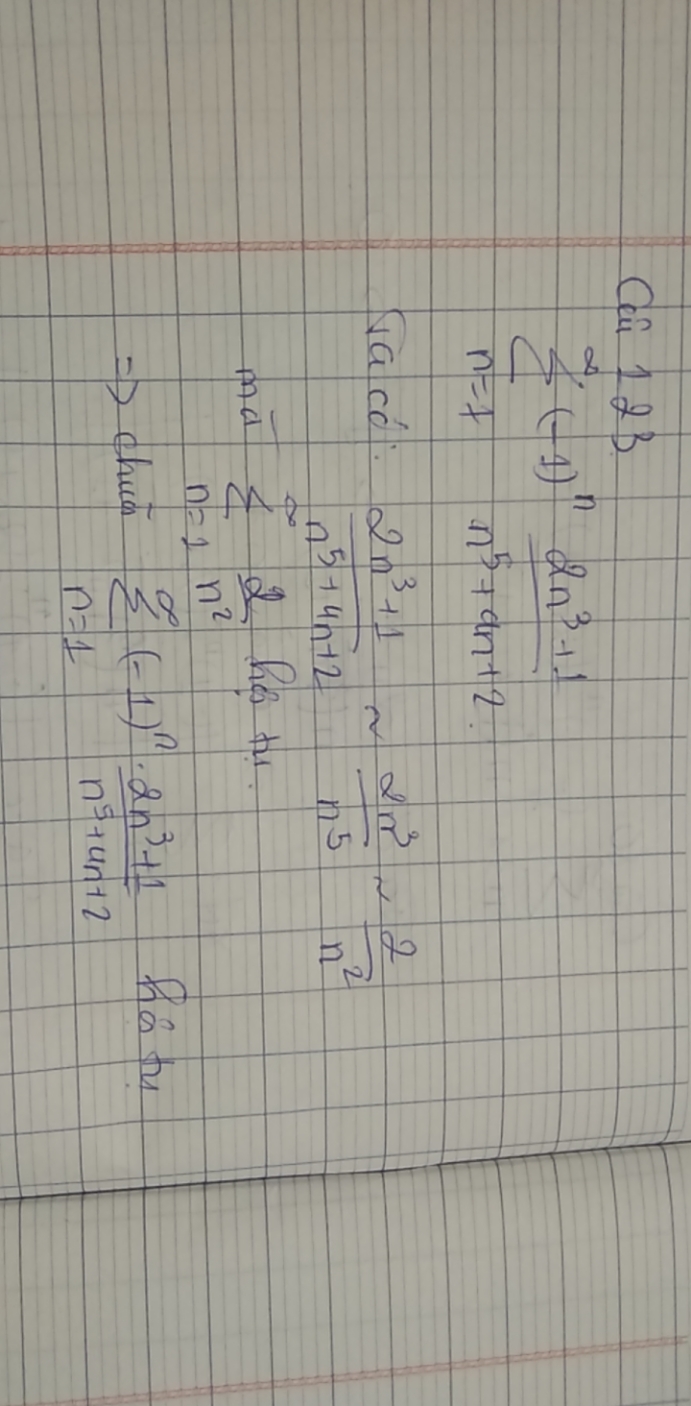 Câu 123
∞
∑ (-1)ⁿ (2n³+1)/(n⁵+4n+2)
n=1
Ta có: (2n³+1)/(n⁵+4n+2) ~ 2n³/n⁵ ~ 2/n²
mà ∑_{n=1}^{∞} 2/n² hội tụ.
=> chuỗi ∑_{n=1}^{∞} (-1)ⁿ . (2n³+1)/(n⁵+4n+2) hội tụ